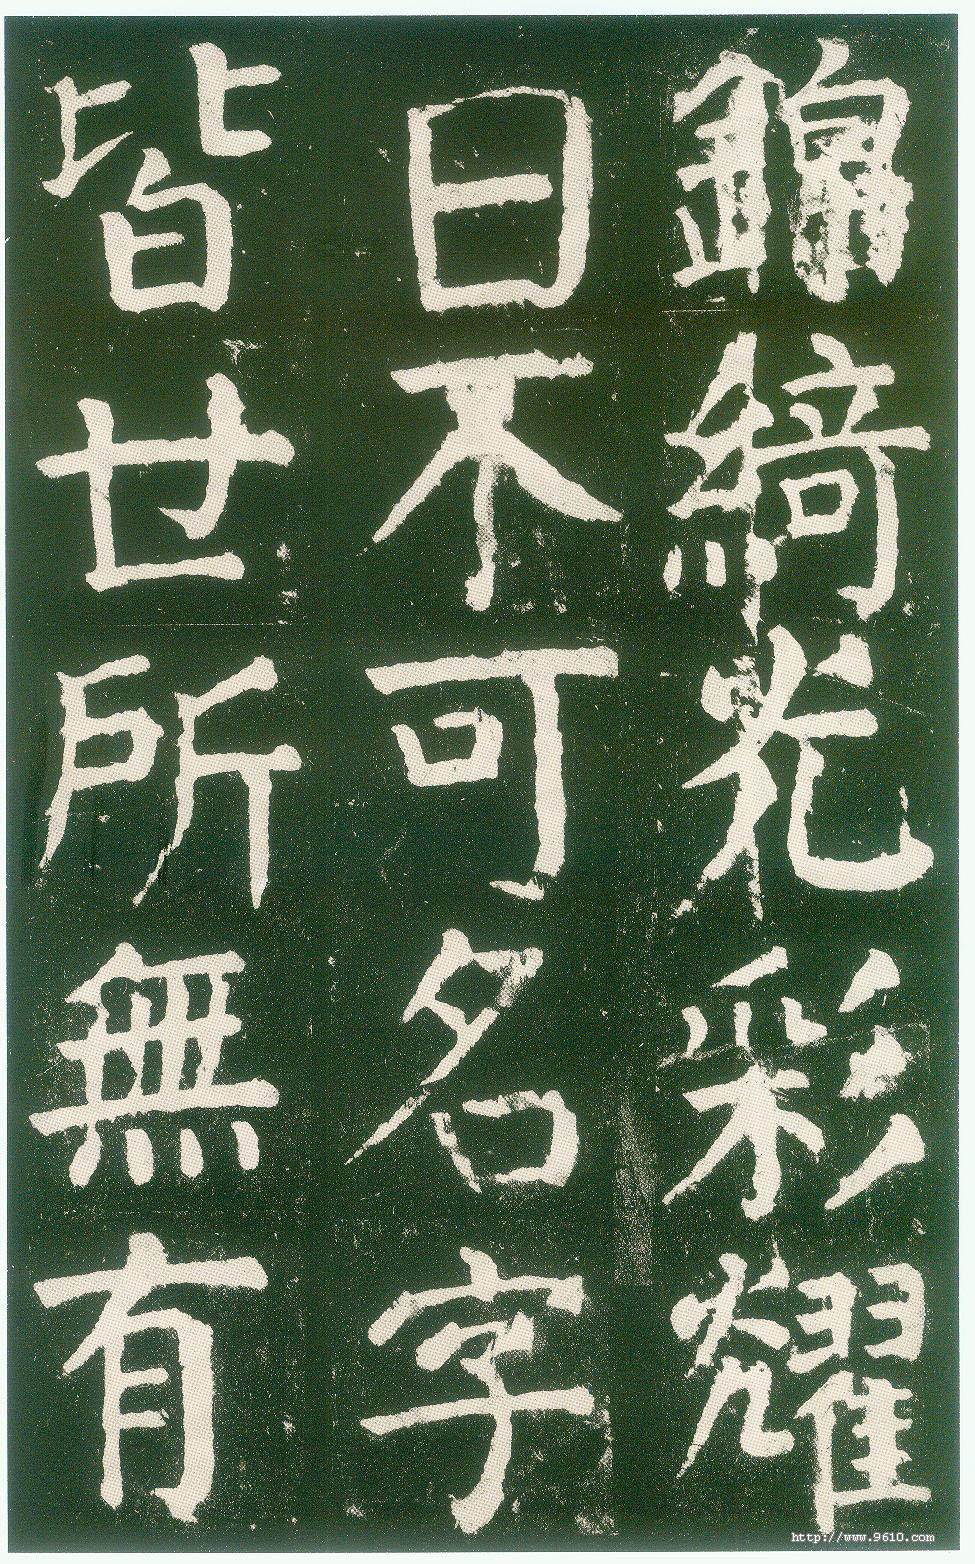 錦綺光彩耀
日不可名字
皆世所無有
http://www.9610.com